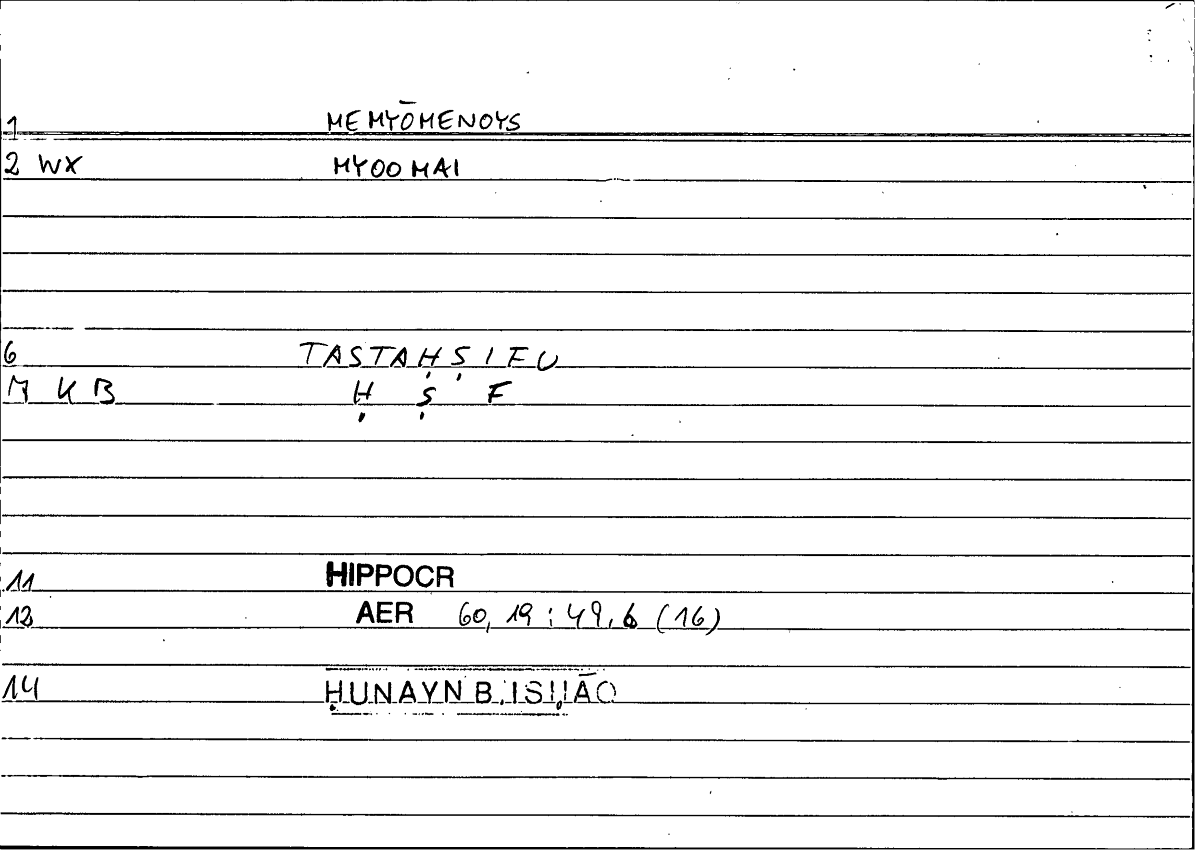 1 MEMYŌMENOYS
2 WX MYOOMAI
6 TASTAḤṢIFU
7 K B Ḥ Ṣ F
11 HIPPOCR
12 AER 60, 19 : 49, 6 (16)
14 ḤUNAYN B. ISḤĀQ